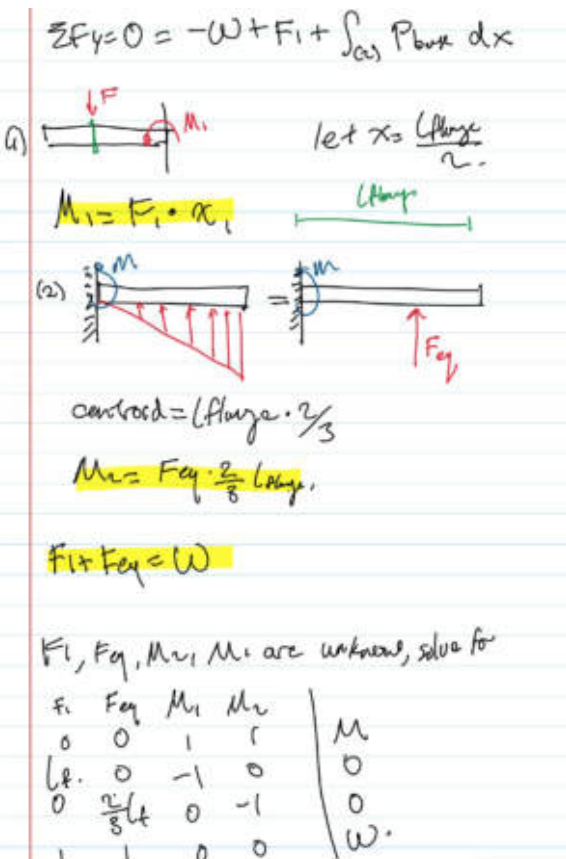 ΣFy=0 = -W + F1 + ∫(2) Pbase dx
(1) F M1 let x = Lflange/2.
M1 = F1 · x1 Lflange
(2) M = M Feq
centroid = Lflange · 2/3
M2 = Feq · 2/3 Lflange.
F1 + Feq = W
F1, Feq, M2, M1 are unknown, solve for
F1 Feq M1 M2
0 0 1 1 M
0 -1 0 0
0 2/3 Lf 0 -1 0
1 1 0 0 W.